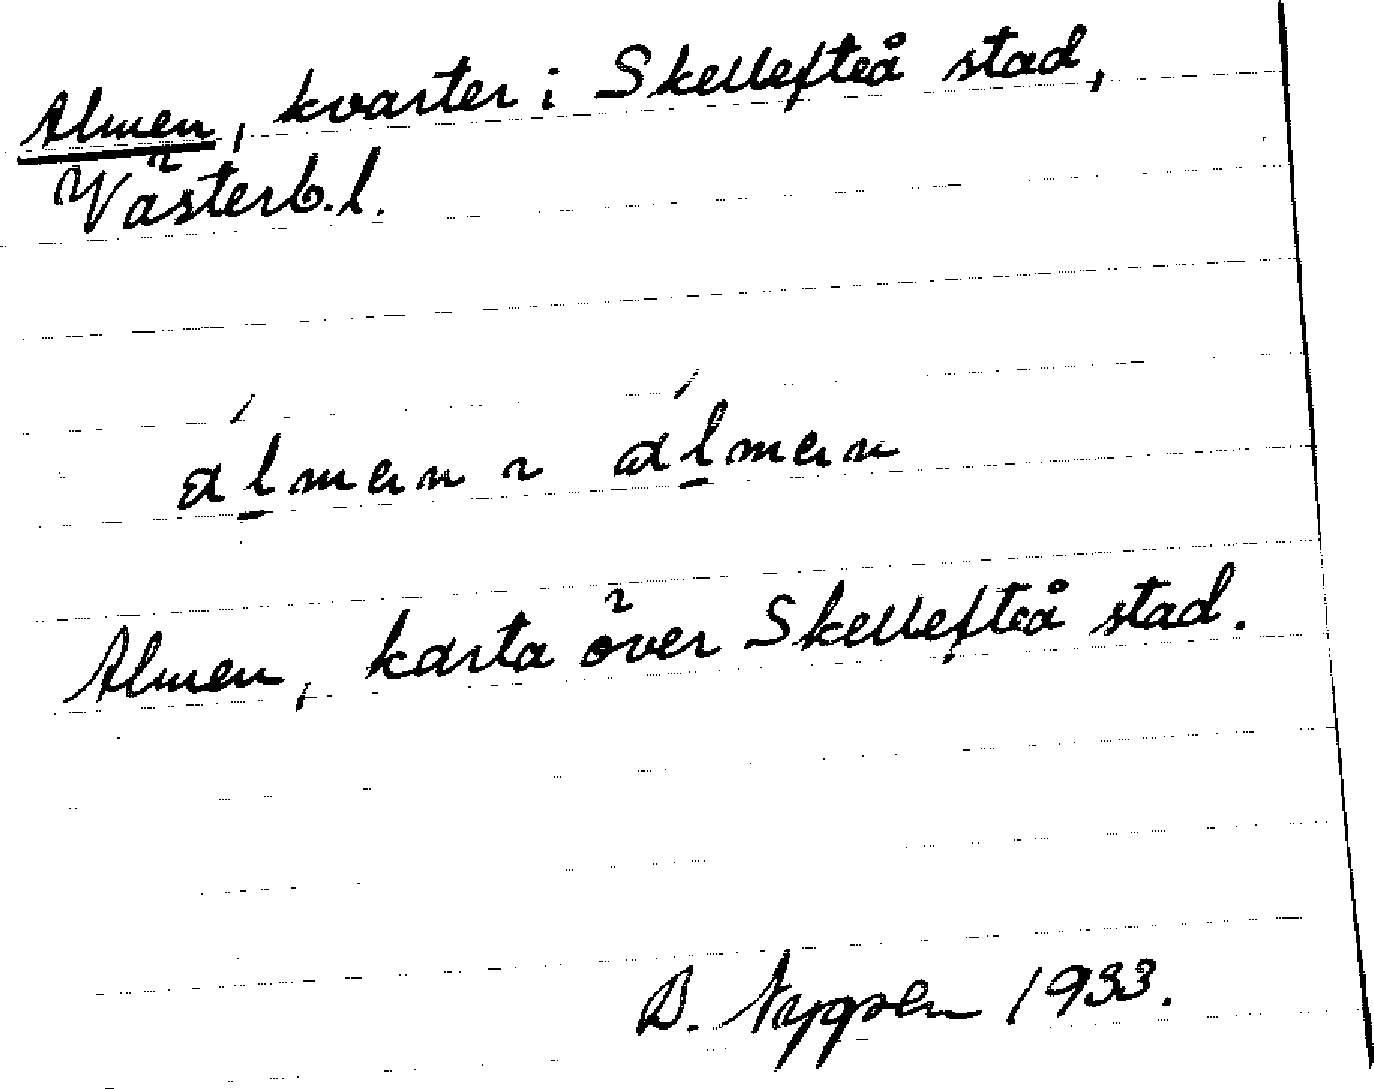 Almen, kvarter i Skellefteå stad,
Västerb. l.
álmen ~ álmen
Almen, karta över Skellefteå stad.
B. 1933.